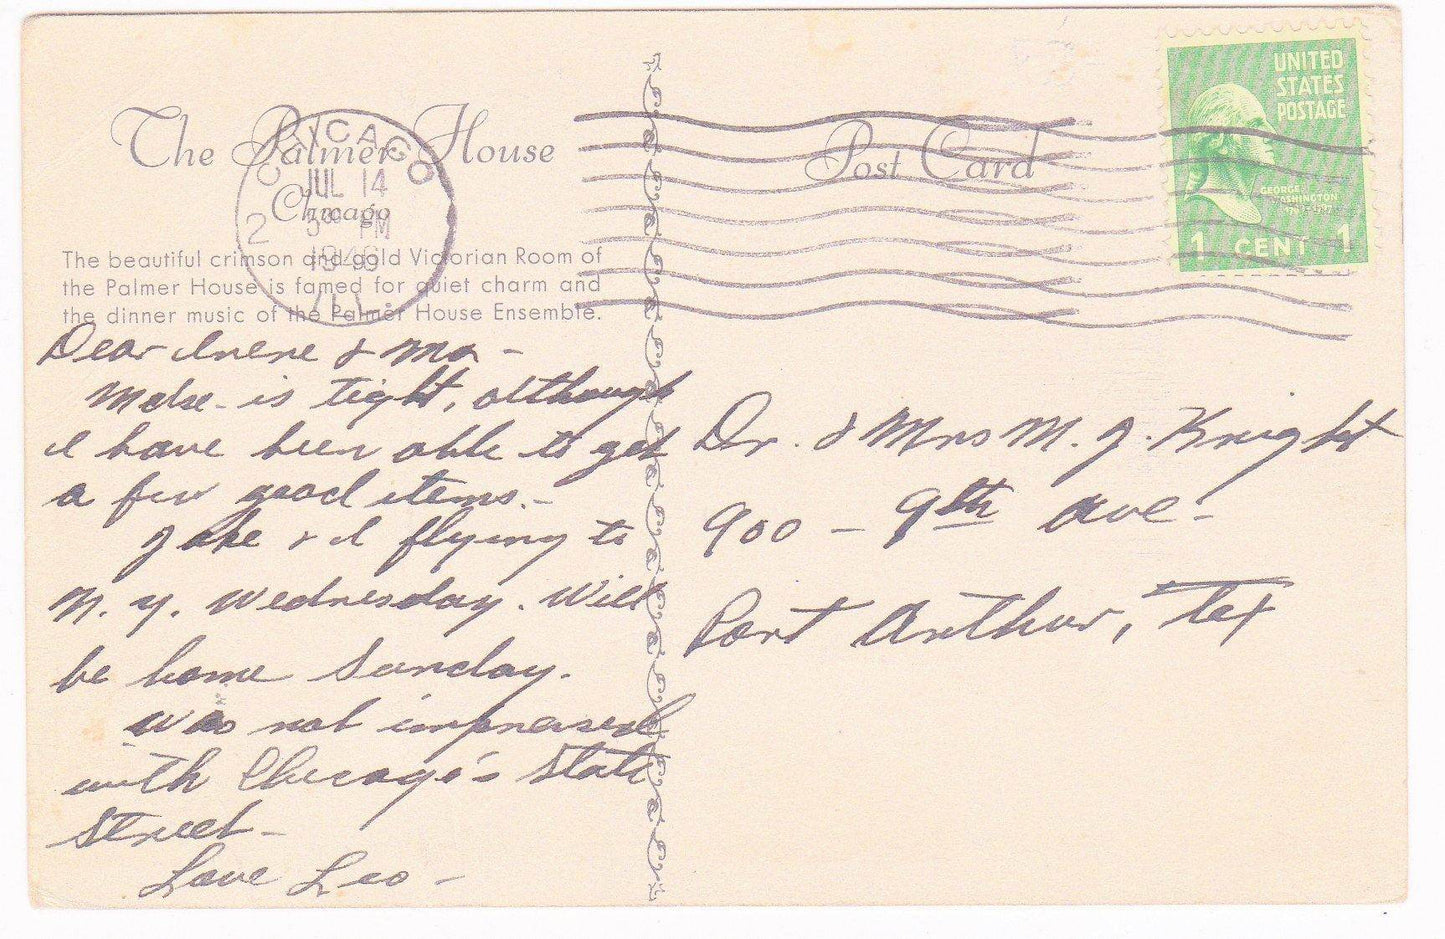 The Palmer House
Chicago
The beautiful crimson and gold Victorian Room of
the Palmer House is famed for quiet charm and
the dinner music of the Palmer House Ensemble.
CHICAGO
JUL 14
PM
1946
ILL.
2
Post Card
UNITED
STATES
POSTAGE
GEORGE
WASHINGTON
1 CENT 1
Dear Irene &
Mdse. is tight, although
I have been able to get
a few good items. -
Jake & I flying to
N. Y. Wednesday. Will
be home Sunday.
Was not impressed
with Chicago's State
Street -
Love Leo -
Dr. & Mrs M. J. Knight
900 - 9th Ave -
Port Arthur, Tex